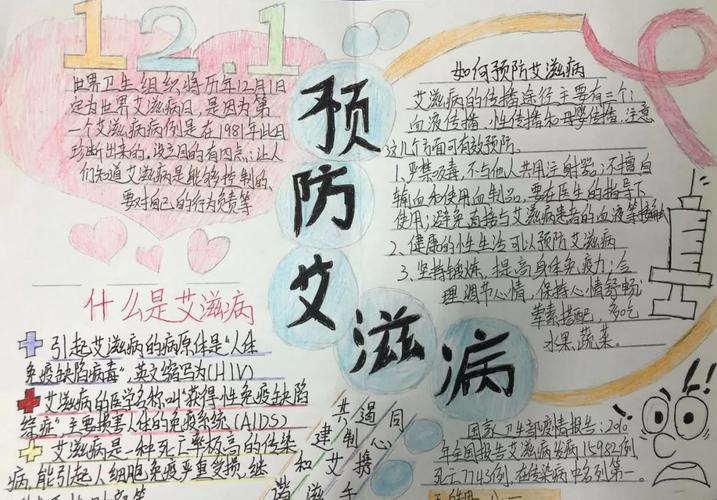 12.1
世界卫生组织将历年12月1日
定为世界艾滋病日，是因为第
一个艾滋病病例是在1981年此日
诊断出来的。设立目的有四点：让人
们知道艾滋病是能够控制的，
要对自己的行为负责等
预防艾滋病
什么是艾滋病
引起艾滋病的病原体是"人体
免疫缺陷病毒"，英文缩写为(HIV)
艾滋病的医学名称叫"获得性免疫缺陷
综症"主要损害人体的免疫系统(AIDS)
艾滋病是一种死亡率极高的传染
病，能引起人细胞免疫严重受损，继
如何预防艾滋病
艾滋病的传播途径主要有三个：
血液传播，性传播和母婴传播，注意
这几个方面可有效预防。
1、严禁吸毒，不与他人共用注射器；不擅自
输血和使用血制品，要在医生的指导下
使用；避免直接与艾滋病患者的血液等接触
2、健康的性生活可以预防艾滋病
3、坚持锻炼，提高身体免疫力；合
理调节心情，保持心情舒畅
荤素搭配，多吃
水果，蔬菜。
同心携手
遏制艾滋
共建和谐
国家卫生部疫情报告：2010
年全国报告艾滋病发病15982例
死亡7743例，在传染病中名列第一。